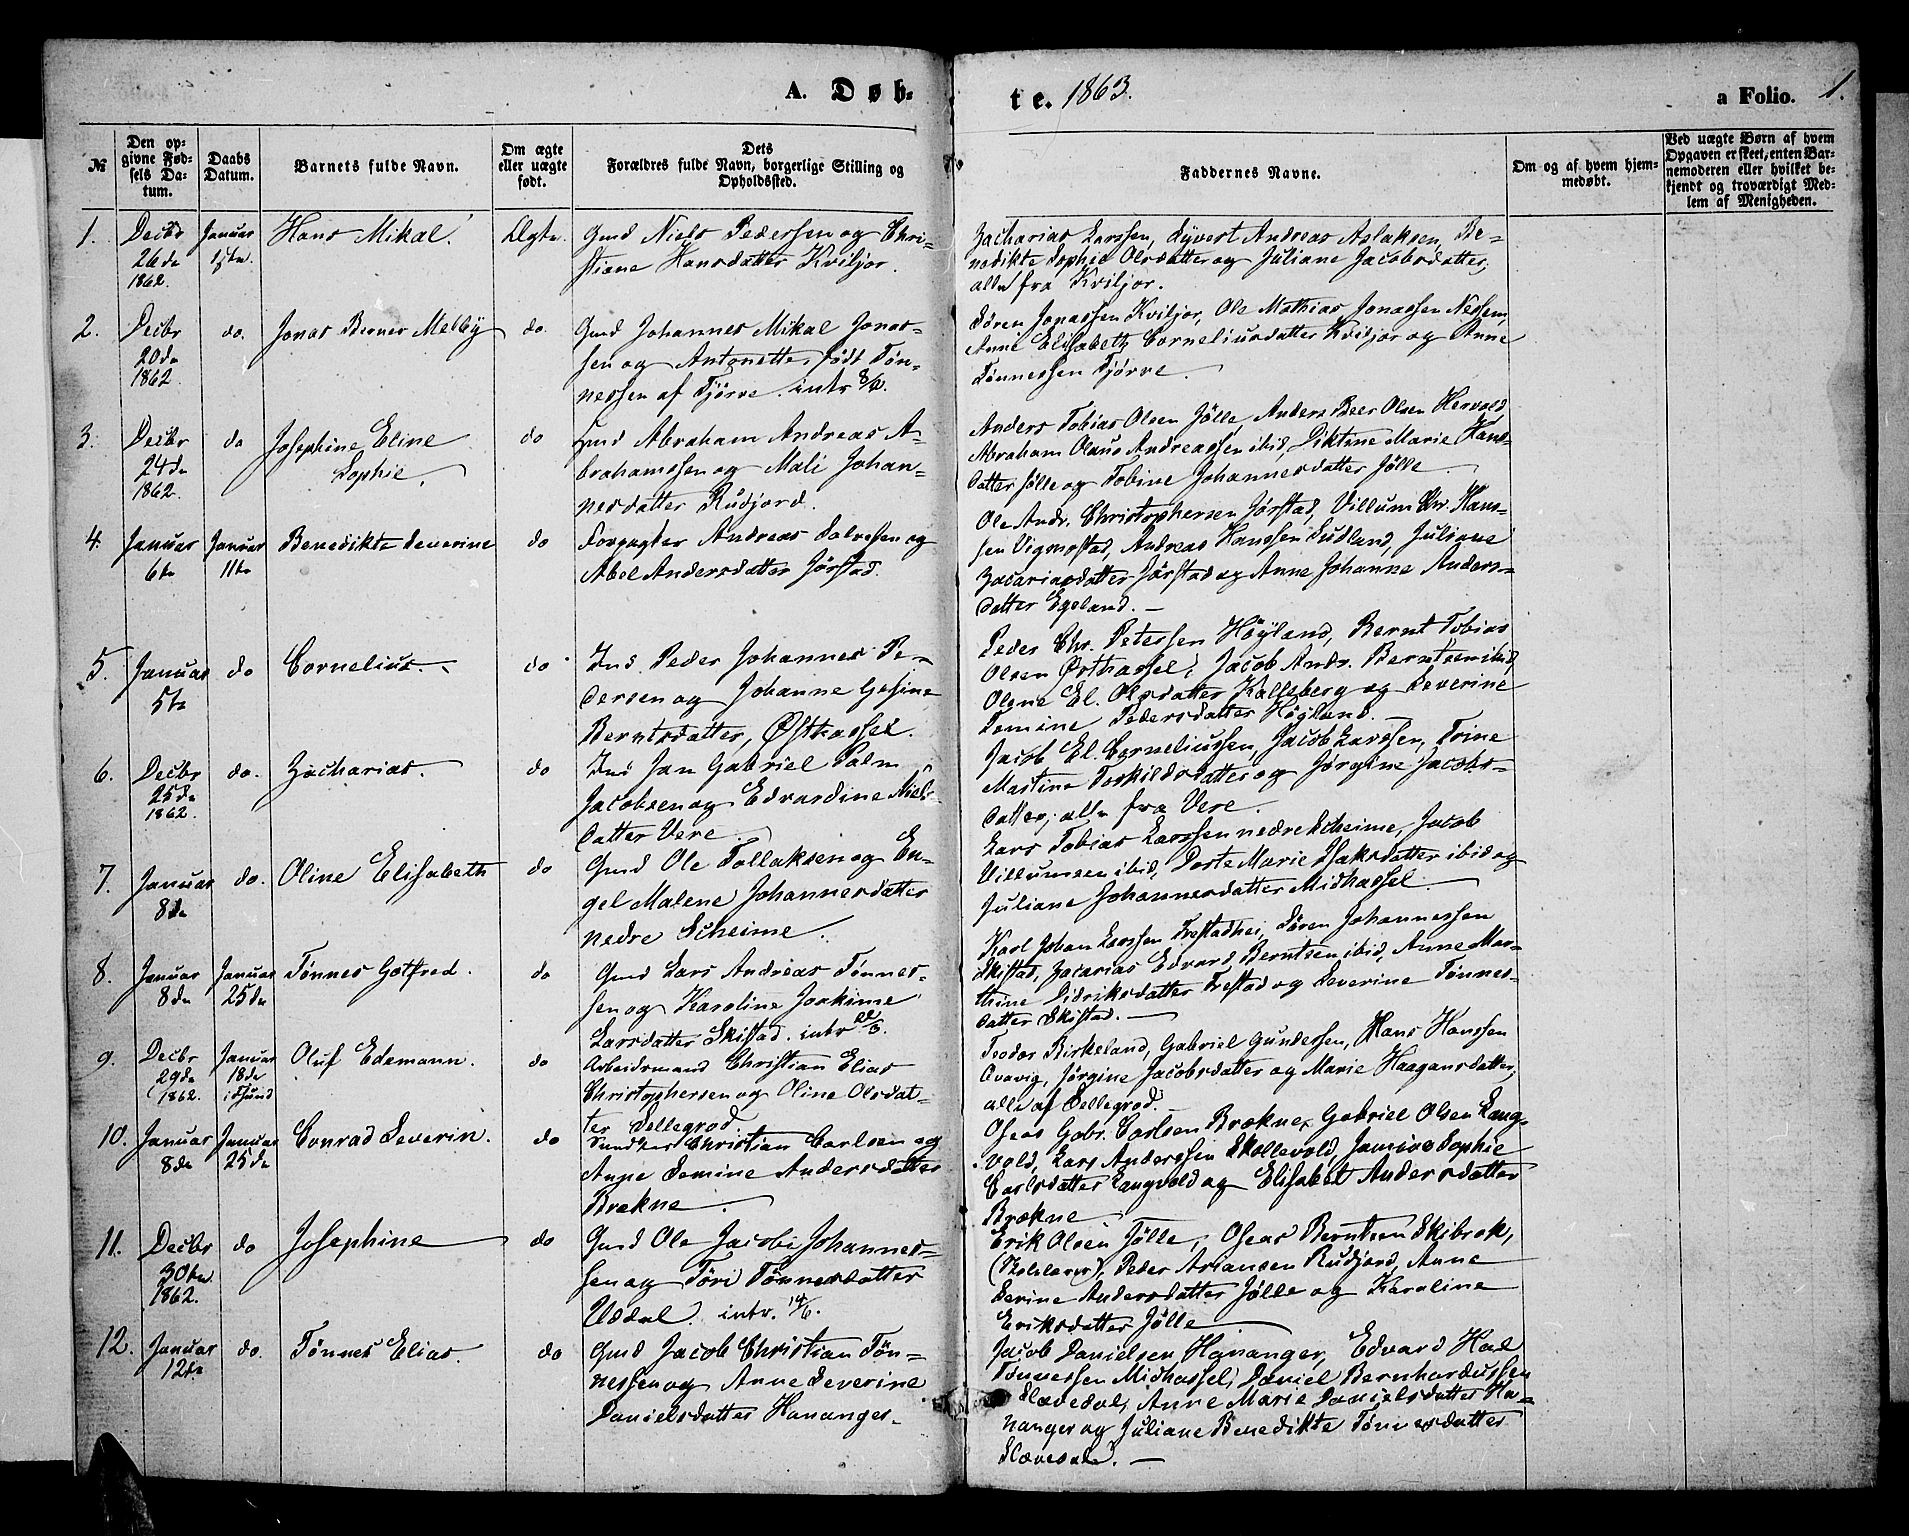 A. Døb-
te. 1863.
a Folio. 1.
№
Den op-
givne Fød-
sels Da-
tum.
Daabs
Datum.
Barnets fulde Navn.
Om ægte
eller uægte
født.
Dets
Forældres fulde Navn, borgerlige Stilling og
Opholdssted.
Faddernes Navne.
Om og af hvem hjem-
medøbt.
Ved uægte Børn af hvem
Opgaven er skeet, enten Bar-
nemoderen eller hvilket be-
kjendt og troværdigt Med-
lem af Menigheden.
1.
Decbr
26de
1862.
Januar
1ste.
Hans Mikal.
Ægte.
Gmd Niels Pedersen og Chri-
stiane Hansdatter Kviljor.
Zacharias Larssen, Syvert Andreas Aslaksen, Be-
nedikte Sophie Olsdatter og Juliane Jacobsdatter,
alle fra Kviljor.
2.
Decbr
20de
1862.
do.
Jonas Berner Melby
do.
Gmd Johannes Mikal Jonas-
sen og Antonette, født Tøn-
nessen af Tjørve. intr 8/6.
Søren Jonassen Kviljor, Ole Mathias Jonassen Nesheim,
Anne Elisabeth Corneliusdatter Kviljor og Anne
Tønnessen Tjørve.
3.
Decbr
24de
1862.
do
Josephine Eline
Sophie.
do
Gmd Abraham Andreas A-
brahamssen og Mali Johan-
nesdatter Rudjord.
Anders Tobias Olsen Jølle, Anders Beer Olsen Hervold,
Abraham Olaus Andreassen ibid, Marie Hans-
datter Jølle og Tobine Johannesdatter Jølle.
4.
Januar
6te
Januar
11te
Benedikte Severine
do
Forpagter Andreas Salvesen og
Abel Andersdatter Jørstad.
Ole Andr. Christophersen Jørstad, Villum Chr. Hans-
sen Vigmostad, Andreas Hanssen Sudland, Juliane
Zacariasdatter Jørstad og Anne Johanne Anders-
datter Egeland. —
5.
Januar
5te
do
Cornelius
do.
Ind Peder Johannes Pe-
dersen og Johanne Gesine
Berntsdatter, Østhassel.
Peder Chr. Petersen Høyland, Bernt Tobias
Olsen Østhassel, Jacob Andr. Berntsen ibid,
Olene El. Olsdatter Kalleberg og Severine
Tomine Pedersdatter Høyland.
6.
Decbr
25de
1862.
do.
Zacharias.
do
Ind Jan Gabriel Palm
Jacobsen og Edvardine Niels-
datter Vere.
Jacob El. Corneliussen, Jacob Larssen, Trine
Martine Torkildsdatter og Jørgine Jacobs-
datter, alle fra Vere.
7.
Januar
8de
do.
Oline Elisabeth
do
Gmd Ole Tollaksen og En-
gel Malene Johannesdatter
nedre Scheime.
Lars Tobias Larssen nedre Scheime, Jacob
Villumsen ibid, Dorte Marie Isaksdatter ibid og
Juliane Johannesdatter Midhassel.
8.
Januar
8de
Januar
25de
Tønnes Gotfred.
do
Gmd Lars Andreas Tønnes-
sen og Karoline Joakime
Larsdatter Skistad. intr 22/3.
Karl Johan Larssen Trestadhei, Søren Johannessen
Skistad, Zacarias Edvard Berntsen ibid, Anne Mar-
thine Didriksdatter Trestad og Severine Tønnes-
datter Skistad. —
9.
Decbr
29de
(1862.
Januar
18de
i Thund
Oluf Edemann.
do
Arbeidsmand Christian Elias
Christophersen og Oline Olsdat-
ter Sellegrod
Teodor Birkeland, Gabriel Gundersen, Hans Hanssen
Qvavig, Jørgine Jacobsdatter og Marie Haagansdatter,
alle af Sellegrod.
10.
Januar
8de
Januar
25de
Conrad Severin.
do
Christian Carlsen og
Anne Semine Andersdatter
Brekne.
Oseas Gabr. Carlsen Brækne, Gabriel Olsen Lang-
vold, Lars Anderssen Skollevold, Sophie
Carlsdatter Langvold og Elisabet Andersdatter
Brækne
11.
Decbr
30te
1862.
do
Josephine
do
Gmd Ole Jacob Johannes-
sen og Tøri Tønnesdatter
Udal. intr. 14/6.
Erik Olsen Jølle, Oseas Berntsen Skibrok,
Peder Ariansen Rudjord, Anne
Serine Andersdatter Jølle og Karoline
Eriksdatter Jølle
12.
Januar
12te
do.
Tønnes Elias.
do
Gmd Jacob Christian Tøn-
nessen og Anne Severine
Danielsdatter Hananger.
Jacob Danielsen Hananger, Edvard Kal
Tønnessen Midhassel, Daniel Bernhardussen
Slevedal, Anne Marie Danielsdatter Ha-
nanger og Juliane Benedikte Tønnesdatter
Slævedal. —